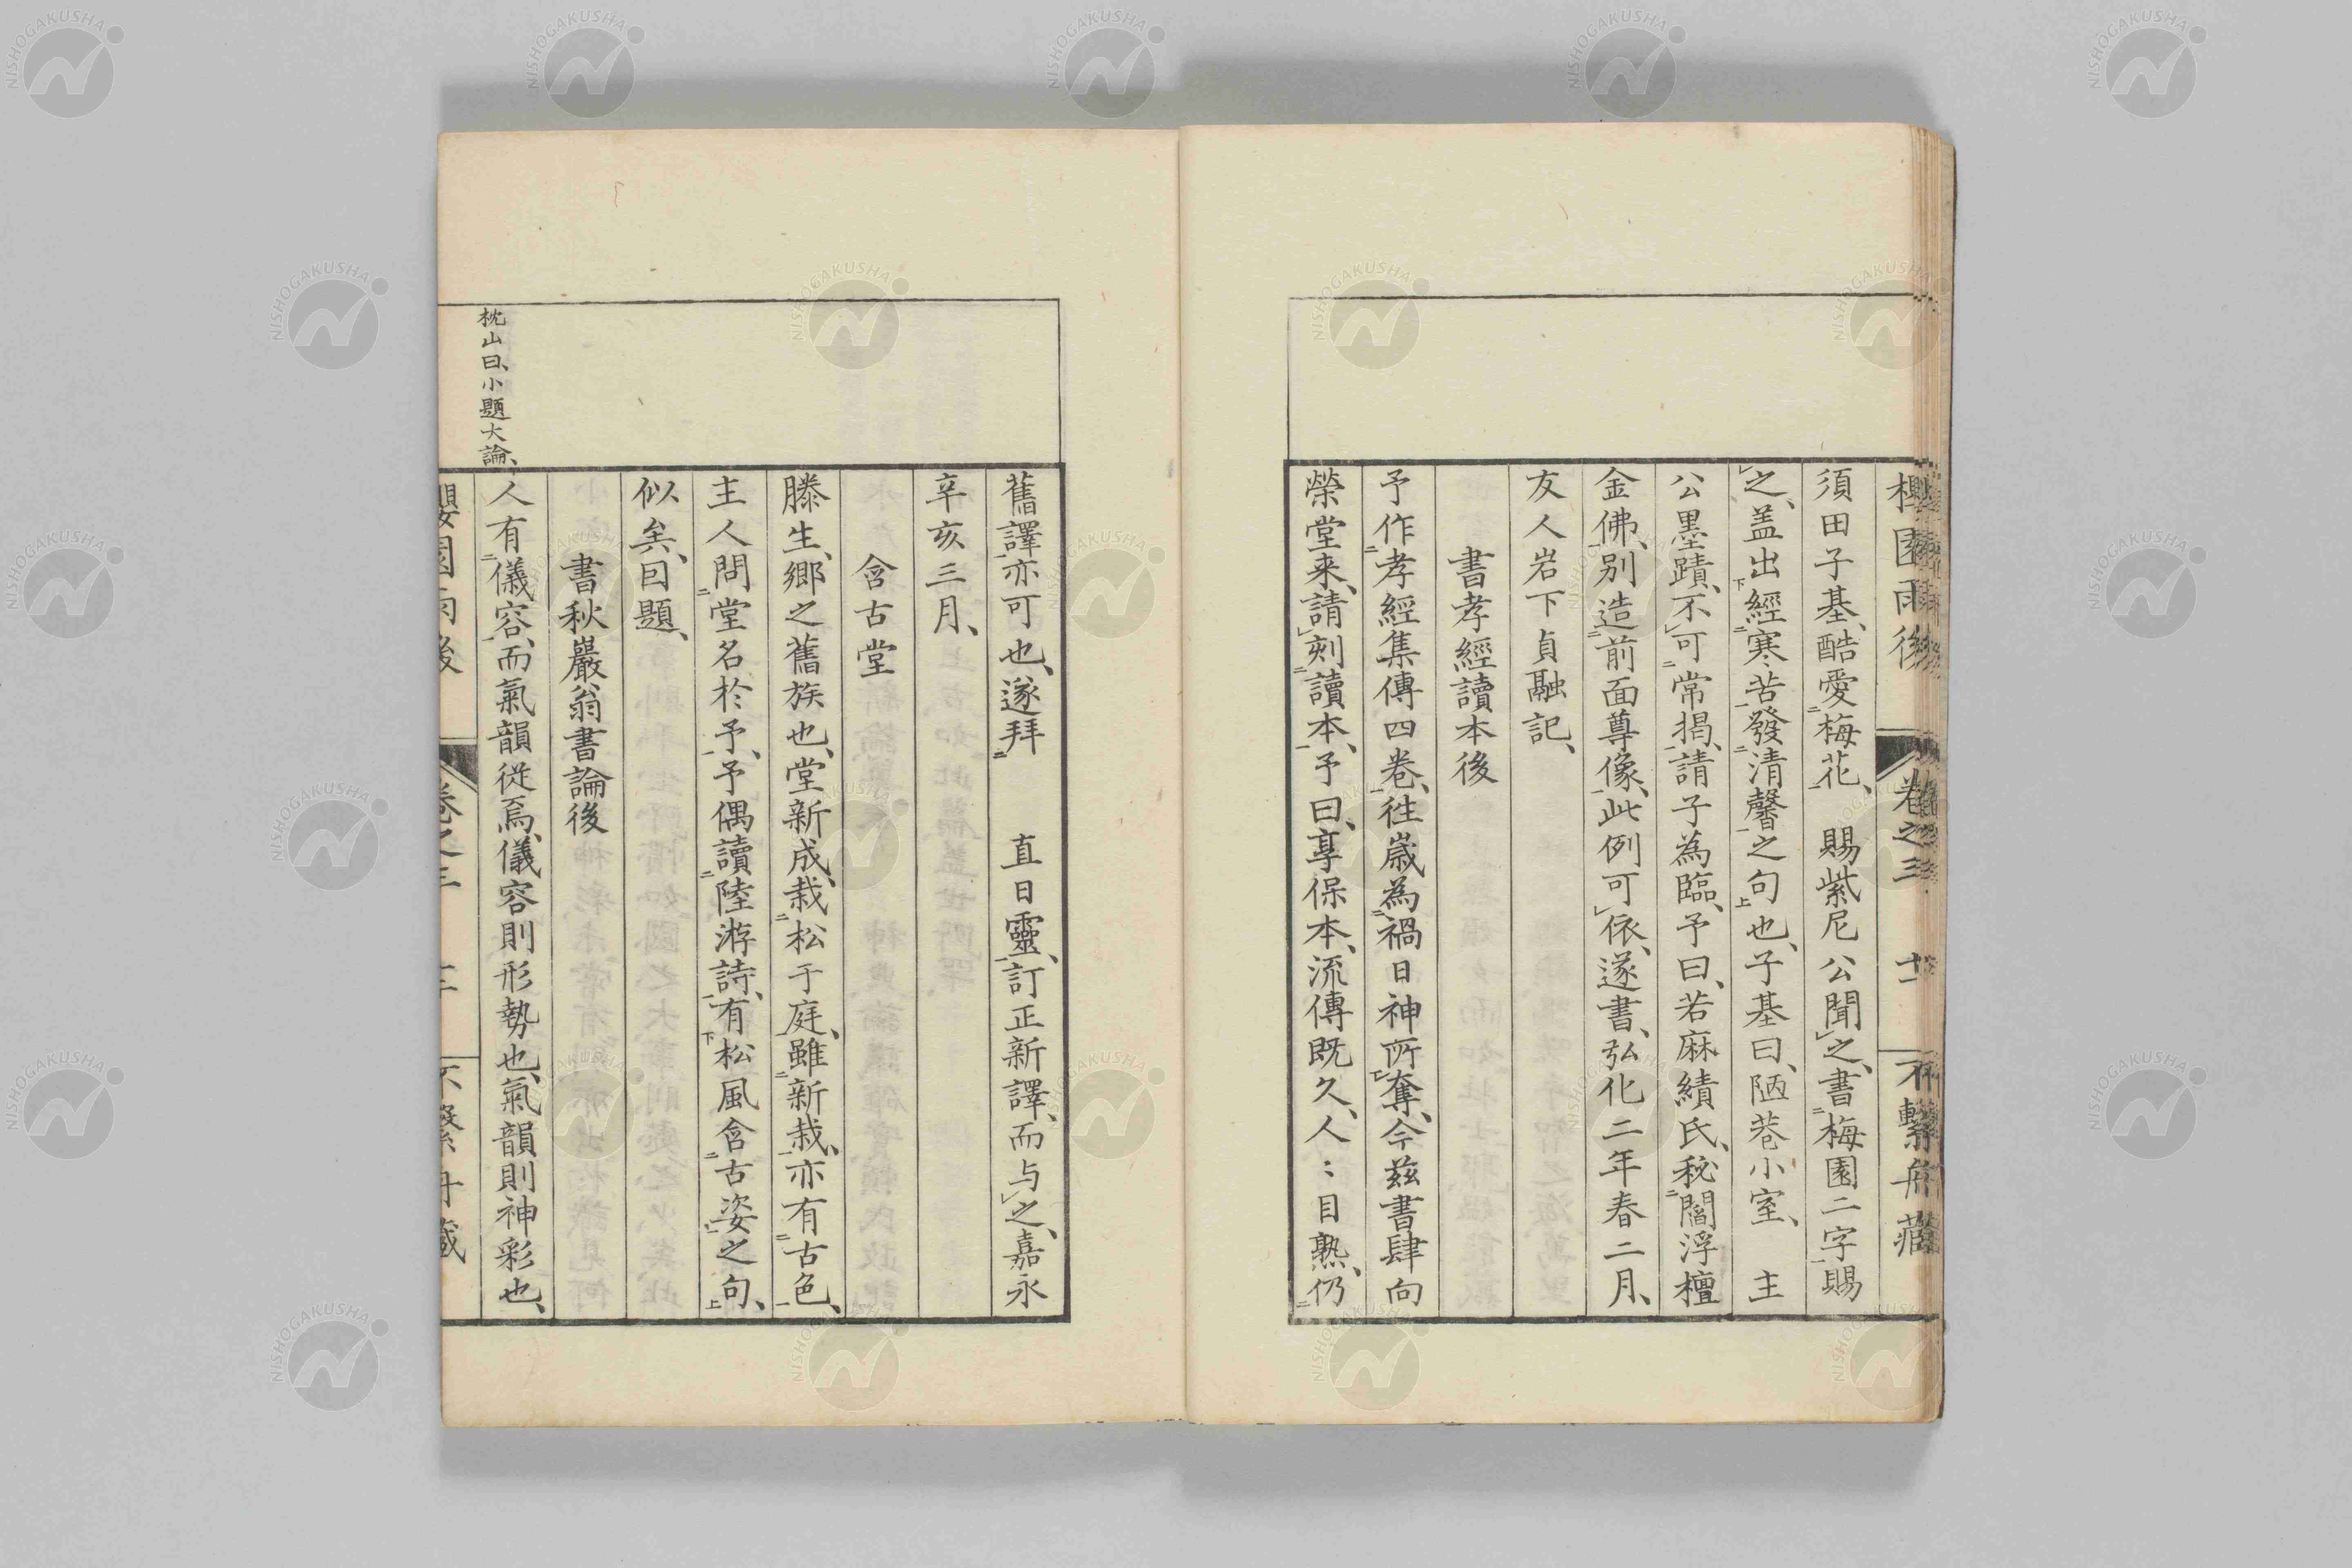 櫻園雨後 卷之三 十一 不繫舟藏
須田子基、酷愛梅花、 賜紫尼公聞之、書梅園二字賜
之、盖出經寒苦發清馨之句也、子基曰、陋巷小室、 主
公墨蹟、不可常掲、請子為臨、予曰、若麻績氏、秘閻浮檀
金佛、別造前面尊像、此例可依、遂書、弘化二年春二月、
友人岩下貞融記、
書孝經讀本後
予作孝經集傳四卷、往歳為禍日神所奪、今茲書肆向
榮堂来、請刻讀本、予曰、享保本、流傳既久、人〻目熟、仍
舊譯亦可也、遂拜 直日靈、訂正新譯、而与之、嘉永
辛亥三月、
含古堂
滕生、郷之舊族也、堂新成、栽松于庭、雖新栽、亦有古色、
主人問堂名於予、予偶讀陸游詩、有松風含古姿之句、
似矣、囙題、
書秋巖翁書論後
枕山曰、小題大論、
人有儀容、而氣韻從焉、儀容則形勢也、氣韻則神彩也、
櫻園雨後 卷之三 不繫舟藏
NISHOGAKUSHA